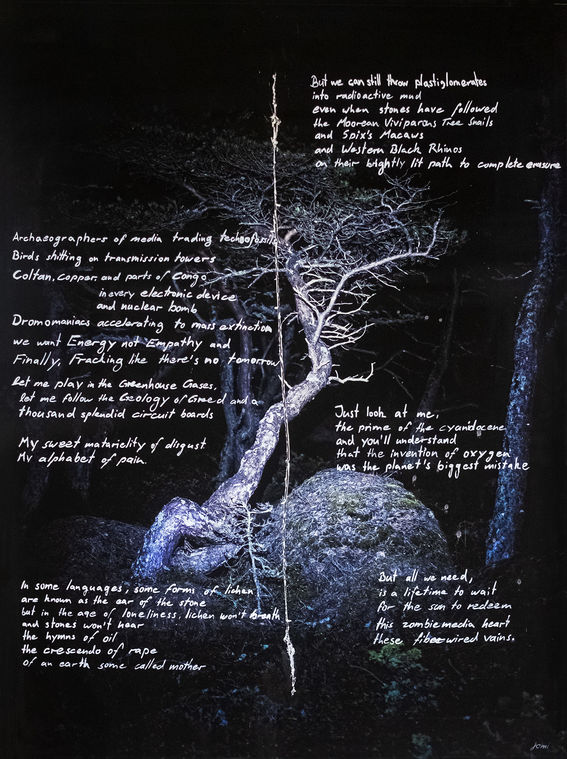 But we can still throw plastiglomerates
into radioactive mud
even when stones have followed
the Moorean Viviparous Tree Snails
and Spix's Macaws
and Western Black Rhinos
on their brightly lit path to complete erasure
Archaeographers of media trading technofossils
Birds shitting on transmission towers
Coltan, copper, and parts of Congo
in every electronic device
and nuclear bomb
Dromomaniacs accelerating to mass extinction
we want Energy not Empathy and
Finally, Fracking like there's no tomorrow
let me play in the Greenhouse Gases,
let me follow the Geology of Greed and a
thousand splendid circuit boards
My sweet materiality of disgust
My alphabet of pain.
Just look at me,
the prime of the cyanidocene
and you'll understand
that the invention of oxygen
was the planet's biggest mistake
In some languages, some forms of lichen
are known as the ear of the stone
but in the age of loneliness, lichen won't breath
and stones won't hear
the hymns of oil
the crescendo of rape
of an earth some called mother
But all we need,
is a lifetime to wait
for the sun to redeem
this zombie media heart
these fibre wired vains.
jomi